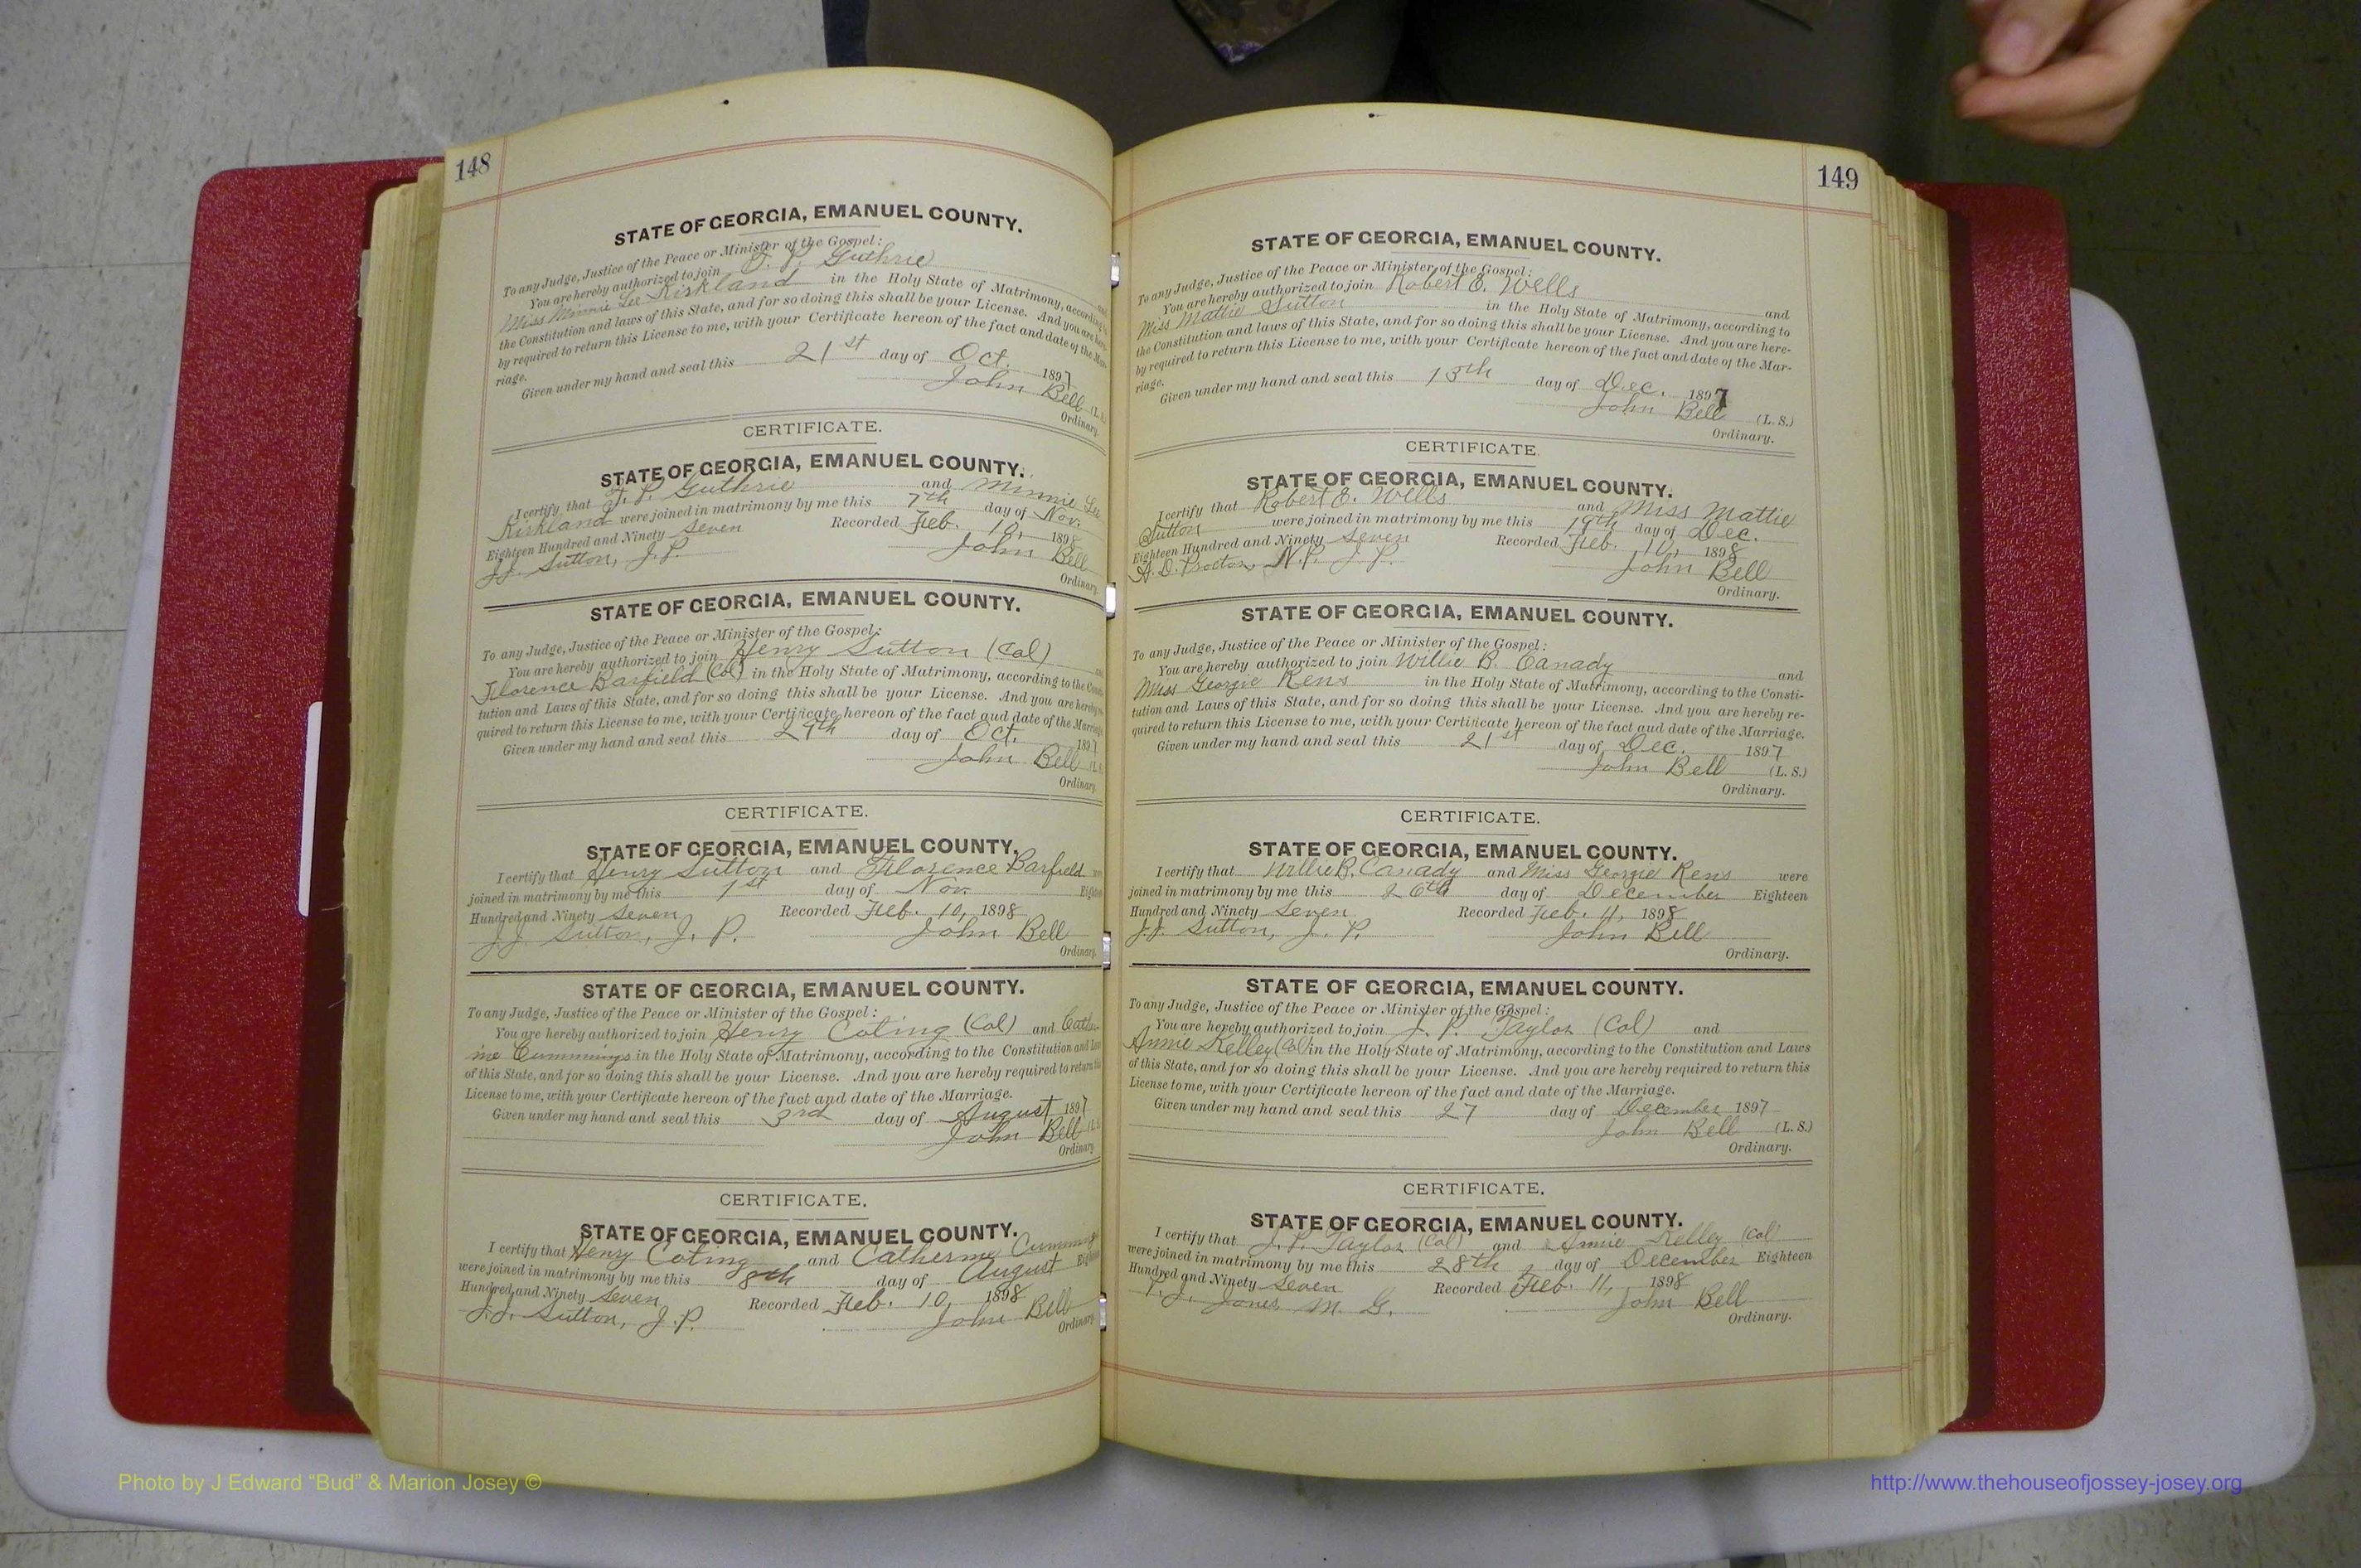 148
STATE OF GEORGIA, EMANUEL COUNTY.
To any Judge, Justice of the Peace or Minister of the Gospel:
You are hereby authorized to join J. P. Guthrie and
Miss Minnie Lee Kirkland in the Holy State of Matrimony, according to
the Constitution and laws of this State, and for so doing this shall be your License. And you are here-
by required to return this License to me, with your Certificate hereon of the fact and date of the Mar-
riage.
Given under my hand and seal this 21st day of Oct. 1897
John Bell (L.
Ordinary.
CERTIFICATE.
STATE OF GEORGIA, EMANUEL COUNTY.
I certify that J. P. Guthrie and Minnie Lee
Kirkland were joined in matrimony by me this 7th day of Nov.
Eighteen Hundred and Ninety Seven Recorded Feb. 10, 1898
J.J. Sutton, J.P. John Bell
Ordinary.
STATE OF GEORGIA, EMANUEL COUNTY.
To any Judge, Justice of the Peace or Minister of the Gospel:
You are hereby authorized to join Henry Sutton (Col) and
Florence Barfield (Col) in the Holy State of Matrimony, according to the Consti-
tution and Laws of this State, and for so doing this shall be your License. And you are hereby re-
quired to return this License to me, with your Certificate hereon of the fact and date of the Marriage.
Given under my hand and seal this 29th day of Oct. 1897
John Bell (L.
Ordinary.
CERTIFICATE.
STATE OF GEORGIA, EMANUEL COUNTY.
I certify that Henry Sutton and Florence Barfield were
joined in matrimony by me this 1st day of Nov. Eighteen
Hundred and Ninety Seven Recorded Feb. 10, 1898
J.J. Sutton, J. P. John Bell
Ordinary.
STATE OF GEORGIA, EMANUEL COUNTY.
To any Judge, Justice of the Peace or Minister of the Gospel:
You are hereby authorized to join Henry Coting (Col) and Cather-
ine Cummings in the Holy State of Matrimony, according to the Constitution and Laws
of this State, and for so doing this shall be your License. And you are hereby required to return this
License to me, with your Certificate hereon of the fact and date of the Marriage.
Given under my hand and seal this 3rd day of August 1897
John Bell (L.
Ordinary.
CERTIFICATE.
STATE OF GEORGIA, EMANUEL COUNTY.
I certify that Henry Coting and Catherine Cummings
were joined in matrimony by me this 8th day of August Eighteen
Hundred and Ninety Seven Recorded Feb. 10, 1898
J.J. Sutton, J.P. John Bell
Ordinary.
149
STATE OF GEORGIA, EMANUEL COUNTY.
To any Judge, Justice of the Peace or Minister of the Gospel:
You are hereby authorized to join Robert E. Wells and
Miss Mattie Sutton in the Holy State of Matrimony, according to
the Constitution and laws of this State, and for so doing this shall be your License. And you are here-
by required to return this License to me, with your Certificate hereon of the fact and date of the Mar-
riage.
Given under my hand and seal this 13th day of Dec. 1897
John Bell (L. S.)
Ordinary.
CERTIFICATE.
STATE OF GEORGIA, EMANUEL COUNTY.
I certify that Robert E. Wells and Miss Mattie
Sutton were joined in matrimony by me this 19th day of Dec.
Eighteen Hundred and Ninety Seven Recorded Feb. 10, 1898
A. D. Proctor, N.P. J.P. John Bell
Ordinary.
STATE OF GEORGIA, EMANUEL COUNTY.
To any Judge, Justice of the Peace or Minister of the Gospel:
You are hereby authorized to join Willie B. Canady and
Miss Georgie Rens in the Holy State of Matrimony, according to the Consti-
tution and Laws of this State, and for so doing this shall be your License. And you are hereby re-
quired to return this License to me, with your Certificate hereon of the fact and date of the Marriage.
Given under my hand and seal this 21st day of Dec. 1897
John Bell (L. S.)
Ordinary.
CERTIFICATE.
STATE OF GEORGIA, EMANUEL COUNTY.
I certify that Willie B. Canady and Miss Georgie Rens were
joined in matrimony by me this 26th day of December Eighteen
Hundred and Ninety Seven Recorded Feb. 11, 1898
J.J. Sutton, J. P. John Bell
Ordinary.
STATE OF GEORGIA, EMANUEL COUNTY.
To any Judge, Justice of the Peace or Minister of the Gospel:
You are hereby authorized to join J. P. Taylor (Col) and
Annie Kelley (Col) in the Holy State of Matrimony, according to the Constitution and Laws
of this State, and for so doing this shall be your License. And you are hereby required to return this
License to me, with your Certificate hereon of the fact and date of the Marriage.
Given under my hand and seal this 27 day of December 1897
John Bell (L. S.)
Ordinary.
CERTIFICATE.
STATE OF GEORGIA, EMANUEL COUNTY.
I certify that J. P. Taylor (Col) and Annie Kelley (Col)
were joined in matrimony by me this 28th day of December Eighteen
Hundred and Ninety Seven Recorded Feb. 11, 1898
T. J. Jones M. G. John Bell
Ordinary.
Photo by J Edward “Bud” & Marion Josey ©
http://www.thehouseofjossey-josey.org